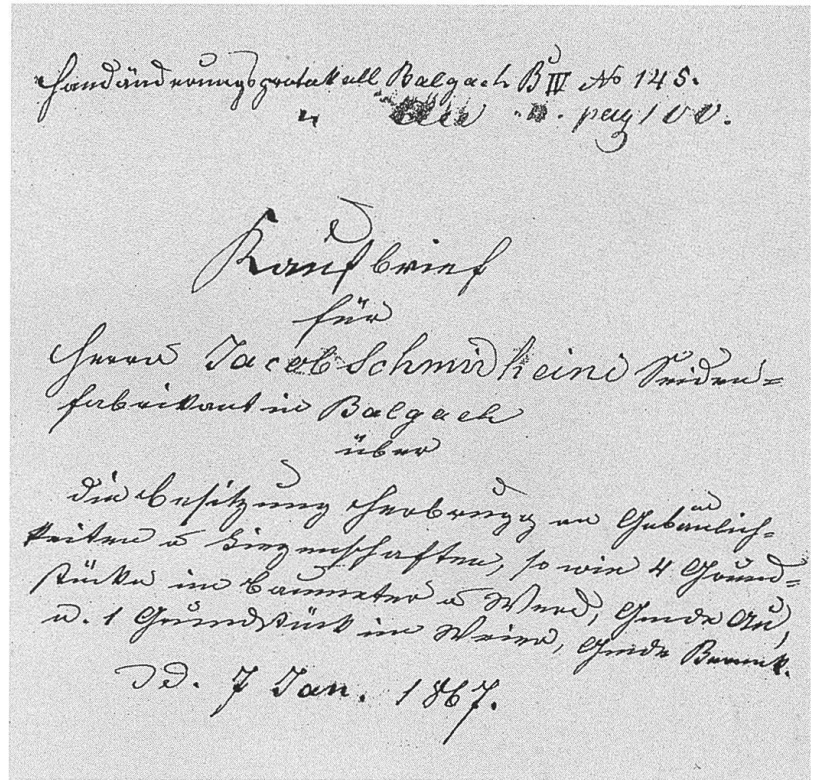 Handänderungsprotokoll Balgach B IV No 145.
" Au " pag 100.
Kaufbrief
für
Herrn Jacob Schmidheini Seiden=
fabrikant in Balgach
über
die Besitzung Heerbrugg an Gebäulich-
keiten u Liegenschaften, so wie 4 Grund=
stücke im Baumeter u Werd, Gmde Au,
u. 1 Grundstück im Weier, Gmde Bernek.
dd. 7 Jan. 1867.